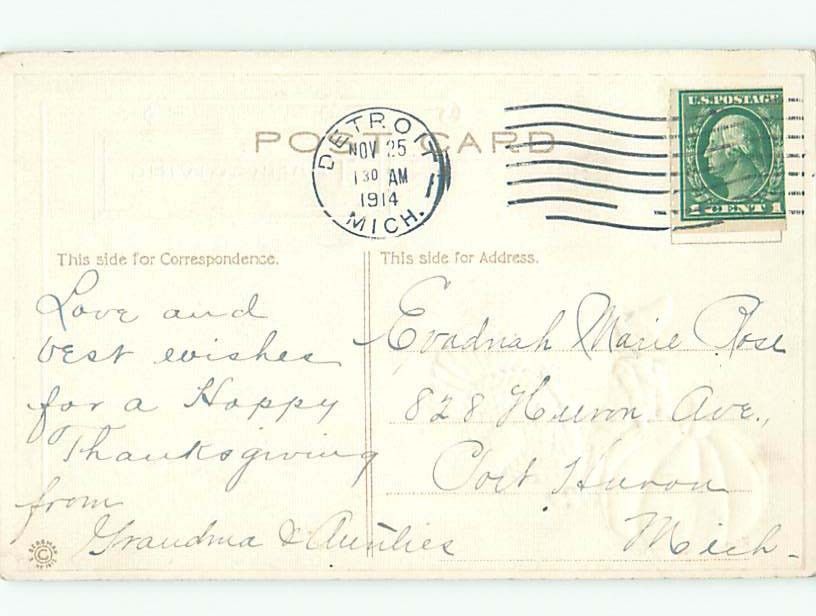 POST CARD
DETROIT
NOV 25
1 30 AM
1914
MICH.
U.S. POSTAGE
1 CENT 1
This side for Correspondence.
This side for Address.
Love and
best wishes
for a Happy
Thanksgiving
from
Grandma & Aunties
Evadnah Marie Rose
828 Huron Ave.,
Port Huron
Mich.